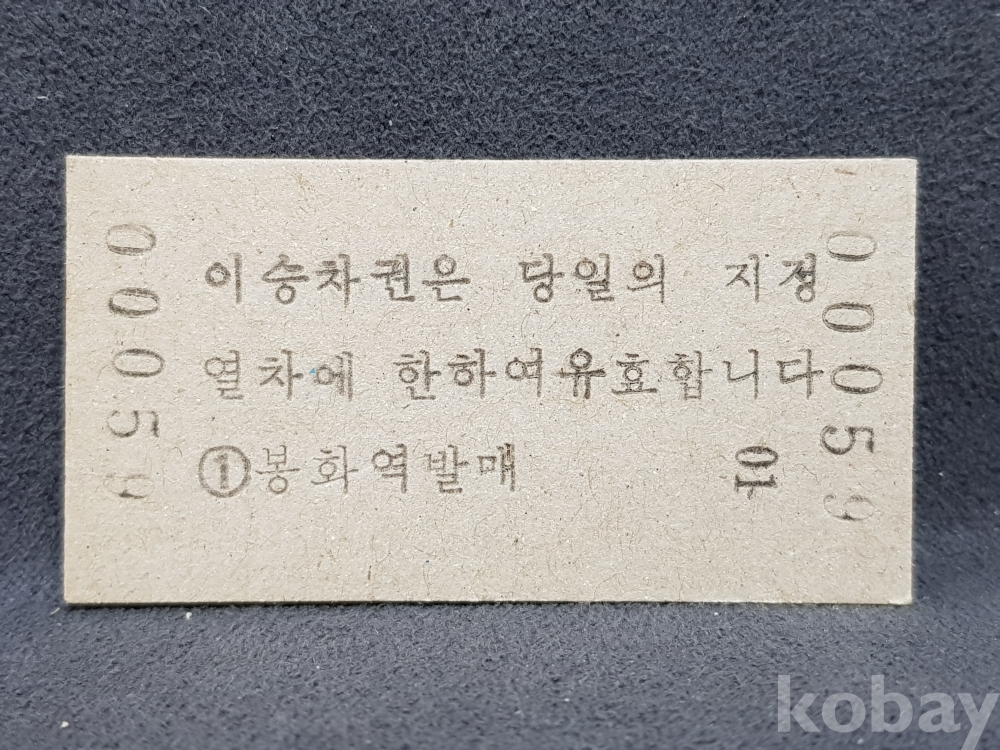 00059
이승차권은 당일의 지정
열차에 한하여유효합니다
①봉화역발매 01
00059
kobay